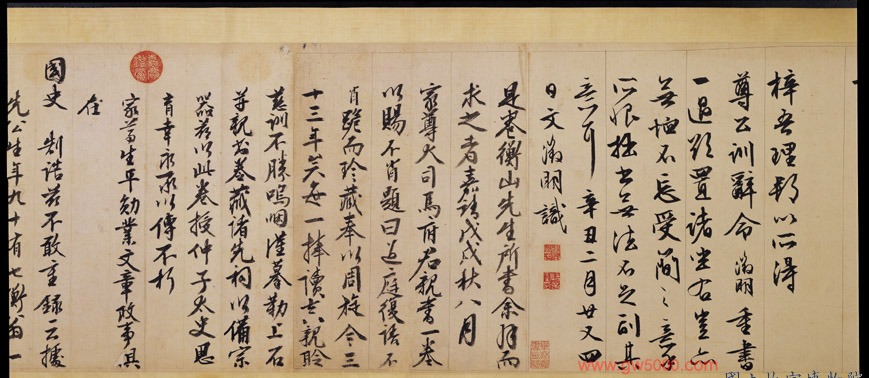 梓吾理以所得
尊公訓辭命徵明重書
一過欲置諸坐右豈亦
不忘受簡之意第
所恨拙書無法不足副其
意耳 辛丑二月廿又四
日文徵明識
是卷衡山先生所書余拜而
求之者嘉靖戊戌秋八月
家尊大司馬府君親書一卷
以賜不肖題曰過庭復語不
肖跪而珍藏奉以周旋今三
十三年矣每一捧讀親聆
慈訓不勝嗚咽謹摹勒上石
並親書卷藏諸先祠以備宗
器茲以此卷授仲子太史思
育幸永永以傳不朽
家尊生平勳業文章政事具
在
國史 制誥茲不敢重錄
先公生年九十有七衡翁一
www.gw5000.com
國立故宮博物院